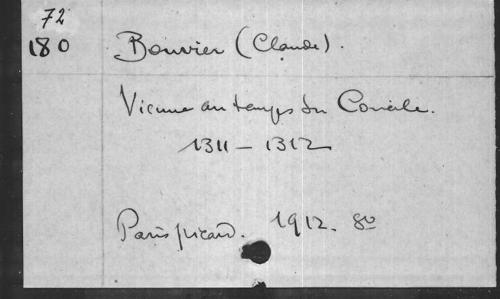 72
180 Bouvier (Claude).
Vienne au temps du Concile.
1311 – 1312
Paris, Picard. 1912. 8º